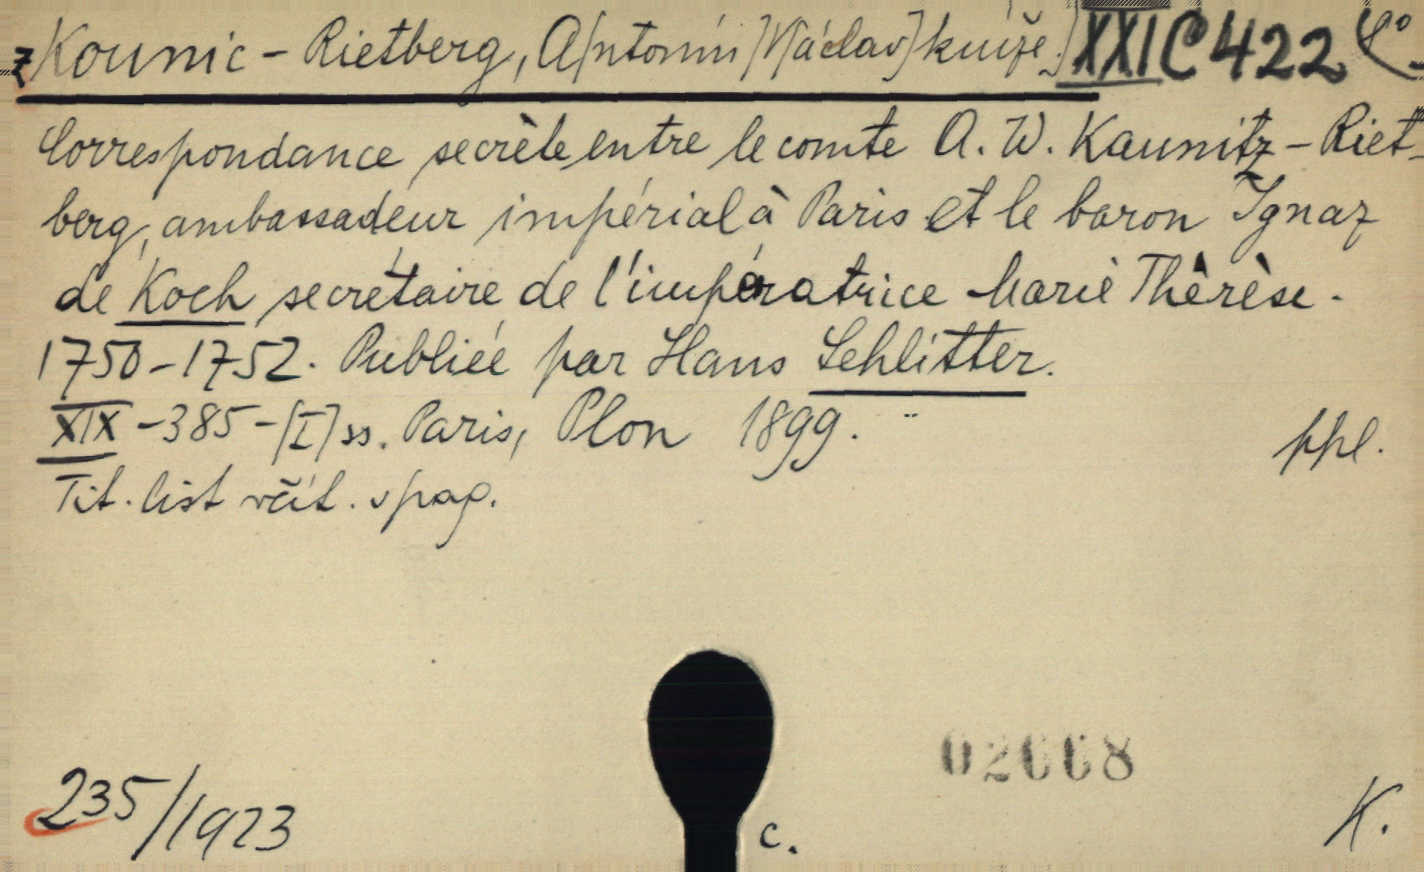 z Kounic - Rietberg, A[ntonín] V[áclav] kníže.] XXI C 422 8°
Correspondance secrète entre le comte A. W. Kaunitz - Riet-
berg, ambassadeur impérial à Paris et le baron Ignaz
de Koch secrétaire de l'impératrice Marie Thérèse.
1750-1752. Publiée par Hans Schlitter.
XIX - 385 - [I] ss. Paris, Plon 1899. ppl.
Tit. list včít. v pag.
02668
235/1923
c.
K.